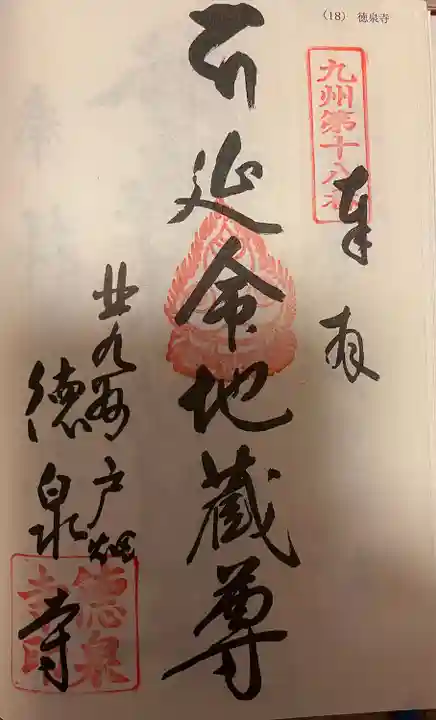 (18) 徳泉寺
九州第十八番
奉
延命地蔵尊
北九州戸畑
徳泉寺
德泉
寺印